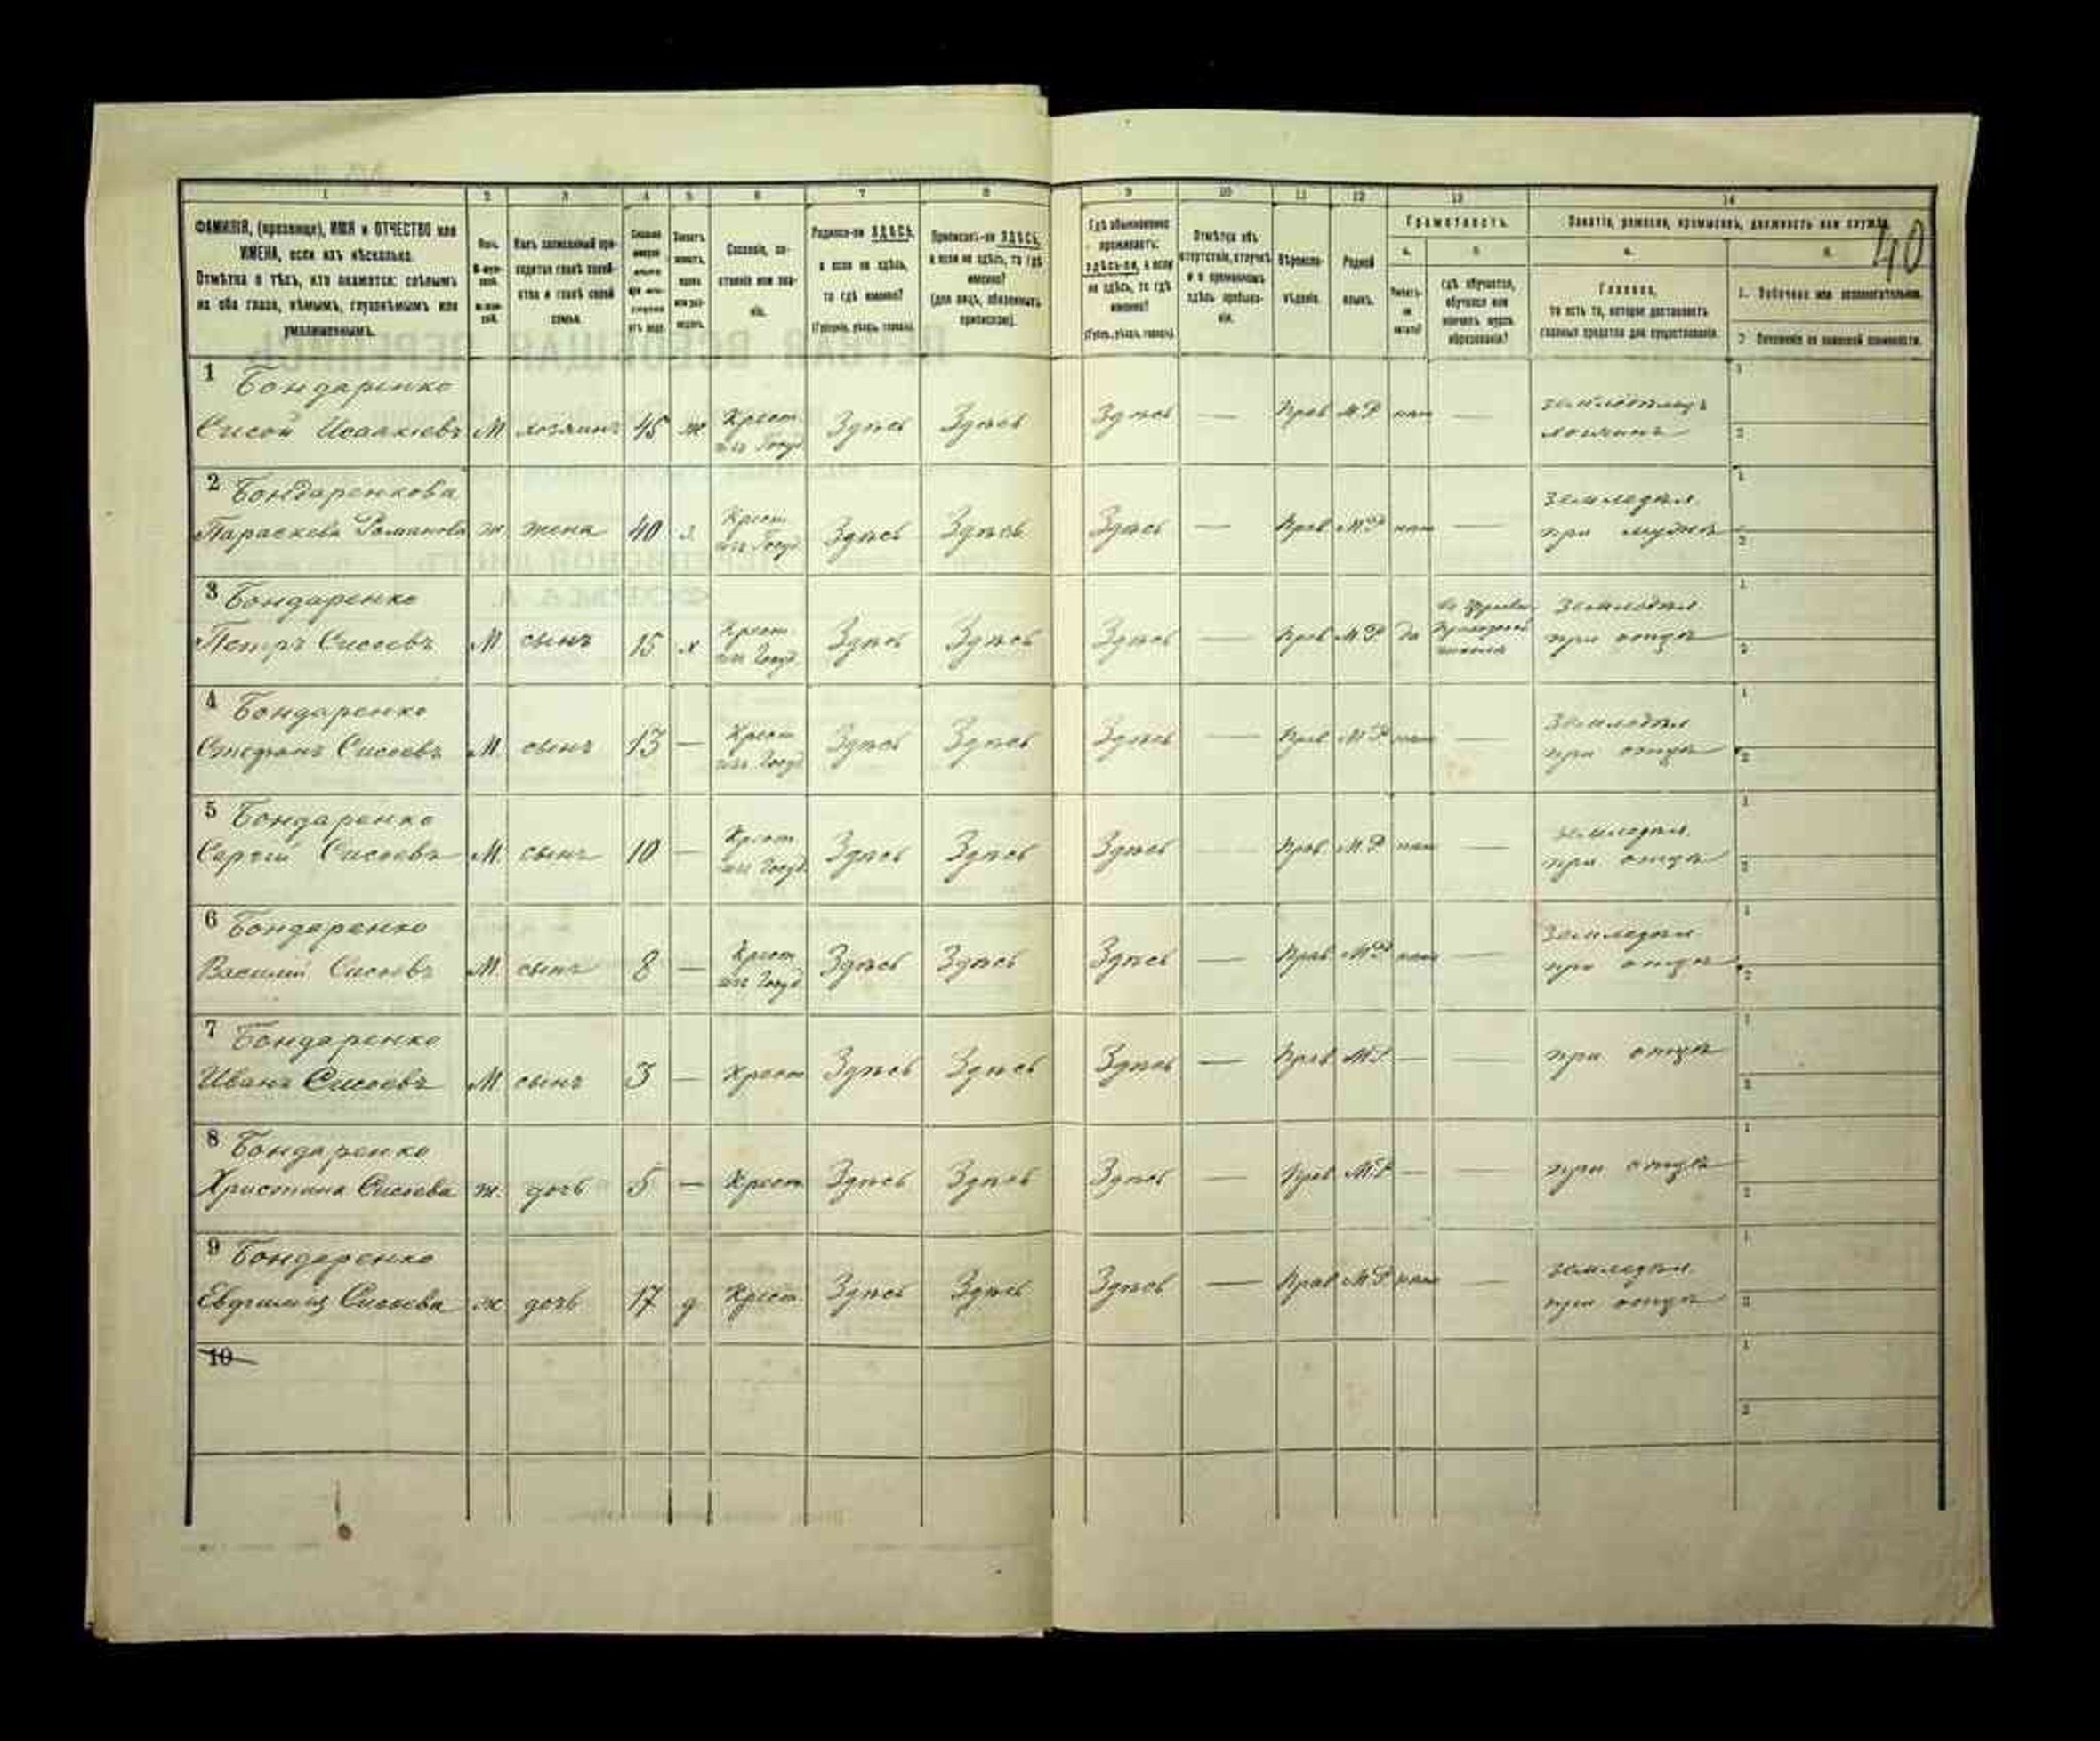 40
1 2 3 4 5 6 7 8 9 10 11 12 13 14
ФАМИЛІЯ, (прозвище), ИМЯ и ОТЧЕСТВО или
ИМЕНА, если ихъ нѣсколько.
Отмѣтка о тѣхъ, кто окажется: слѣпымъ
на оба глаза, нѣмымъ, глухонѣмымъ или
умалишеннымъ.
Полъ.
Какъ записанный при-
ходится главѣ хозяй-
ства и главѣ своей
семьи.
Сословіе, со-
стояніе или зва-
ніе.
Родился-ли ЗДѢСЬ,
а если не здѣсь,
то гдѣ именно?
(Губернія, уѣздъ, городъ).
Приписанъ-ли ЗДѢСЬ,
а если не здѣсь, то гдѣ
именно?
(для лицъ, обязанныхъ
припискою).
Гдѣ обыкновенно
проживаетъ:
здѣсь-ли, а если
не здѣсь, то гдѣ
именно?
(Губ., уѣздъ, городъ).
Отмѣтка объ
отсутствіи, отлучкѣ
и о временномъ
здѣсь пребыва-
ніи.
Вѣроиспо-
вѣданіе.
Родной
языкъ.
Грамотность.
а. б.
Умѣетъ-
ли
читать?
гдѣ обучается,
обучался или
кончилъ курсъ
образованія?
Занятіе, ремесло, промыселъ, должность или служба.
а. б.
Главное,
то есть то, которое доставляетъ
главныя средства для существованія.
1. Побочное или вспомогательное.
2 Положеніе по воинской повинности.
1 Бондаренко
Сисой Исаакіевъ М хозяинъ 45 ж Крест. изъ Госуд Здѣсь Здѣсь Здѣсь — Прав М.Р. нѣт — земледѣлецъ хозяинъ
2 Бондаренкова
Параскева Романова ж. жена 40 з. Крест изъ Госуд Здѣсь Здѣсь Здѣсь — Прав М.Р нѣт — земледѣл. при мужѣ
3 Бондаренко
Петръ Сисоевъ М сынъ 15 х Крест. изъ Госуд. Здѣсь Здѣсь Здѣсь — Прав М.Р. да земледѣл при отцѣ
4 Бондаренко
Стефанъ Сисоевъ М. сынъ 13 — Крест изъ Госуд Здѣсь Здѣсь Здѣсь — Прав М.Р нѣт — земледѣл при отцѣ
5 Бондаренко
Сергій Сисоевъ М. сынъ 10 — Крест. изъ Госуд Здѣсь Здѣсь Здѣсь — Прав. М.Р нѣт — земледѣл. при отцѣ
6 Бондаренко
Василій Сисоевъ М. сынъ 8 — Крест изъ Госуд Здѣсь Здѣсь Здѣсь — Прав МР нѣт — земледѣл при отцѣ
7 Бондаренко
Иванъ Сисоевъ М сынъ 3 — Крест Здѣсь Здѣсь Здѣсь — Прав. М.Р. — — при отцѣ
8 Бондаренко
Христина Сисоева ж. дочь 5 — Крест. Здѣсь Здѣсь Здѣсь — Прав М.Р — — при отцѣ
9 Бондаренко
Сисоева ж дочь 17 д Крест. Здѣсь Здѣсь Здѣсь — Прав М.Р нѣт — земледѣл. при отцѣ
10